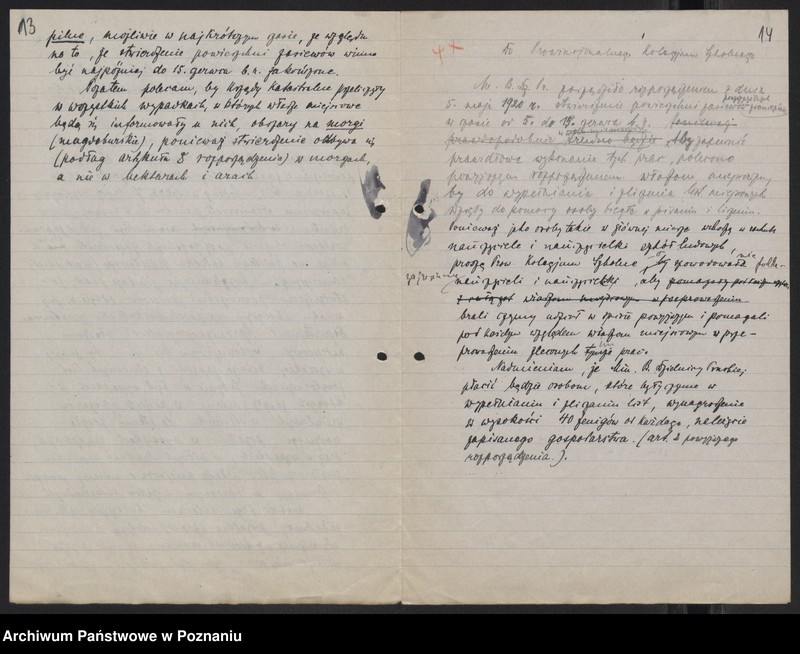 13
pilne, możliwie w najkrótszym czasie, ze względu
na to, że stwierdzenie powierzchni zasiewów winno
być najpóźniej do 15. czerwca b.r. zakończone.
Pozatem polecam, by Urzędy Katastralne
w wszystkich wypadkach, w których władze miejscowe
będą się informowały u nich, obszary na morgi
(magdeburskie), ponieważ stwierdzenie odbywa się
(podług artykułu 3 rozporządzenia) w morgach,
a nie w hektarach i arach.
14
Do Prowincjonalnego Kolegjum Szkolnego
M. B. Dz. Pr. rozporządzeniem z dnia
5. maja 1920 r. stwierdzenie powierzchni zasiewów
w czasie od 5. do 15. czerwca b.r. Aby zapewnić
prawidłowe wykonanie tych prac, polecono
powyższem rozporządzeniem władzom miejscowym
by do wypełniania i zliczania list
wzięły do pomocy osoby biegłe w pisaniu i liczeniu.
Ponieważ jako osoby takie w głównej mierze wchodzą w rachubę
nauczyciele i nauczycielki szkół ludowych,
proszę Prow. Kolegjum Szkolne, by spowodowało
nauczycieli i nauczycielki, aby
brali czynny udział w myśl powyższym i pomagali
pod każdym względem władzom miejscowym w prze-
prowadzeniu zleconych im prac.
Nadmieniam, że Min. b. Dzielnicy Pruskiej
płacić będzie osobom, które są czynne w
wypełnianiu i zliczaniu list, wynagrodzenie
w wysokości 40 fenigów od każdego, należycie
zapisanego gospodarstwa. (art. 2 powyższego
rozporządzenia.).
Archiwum Państwowe w Poznaniu